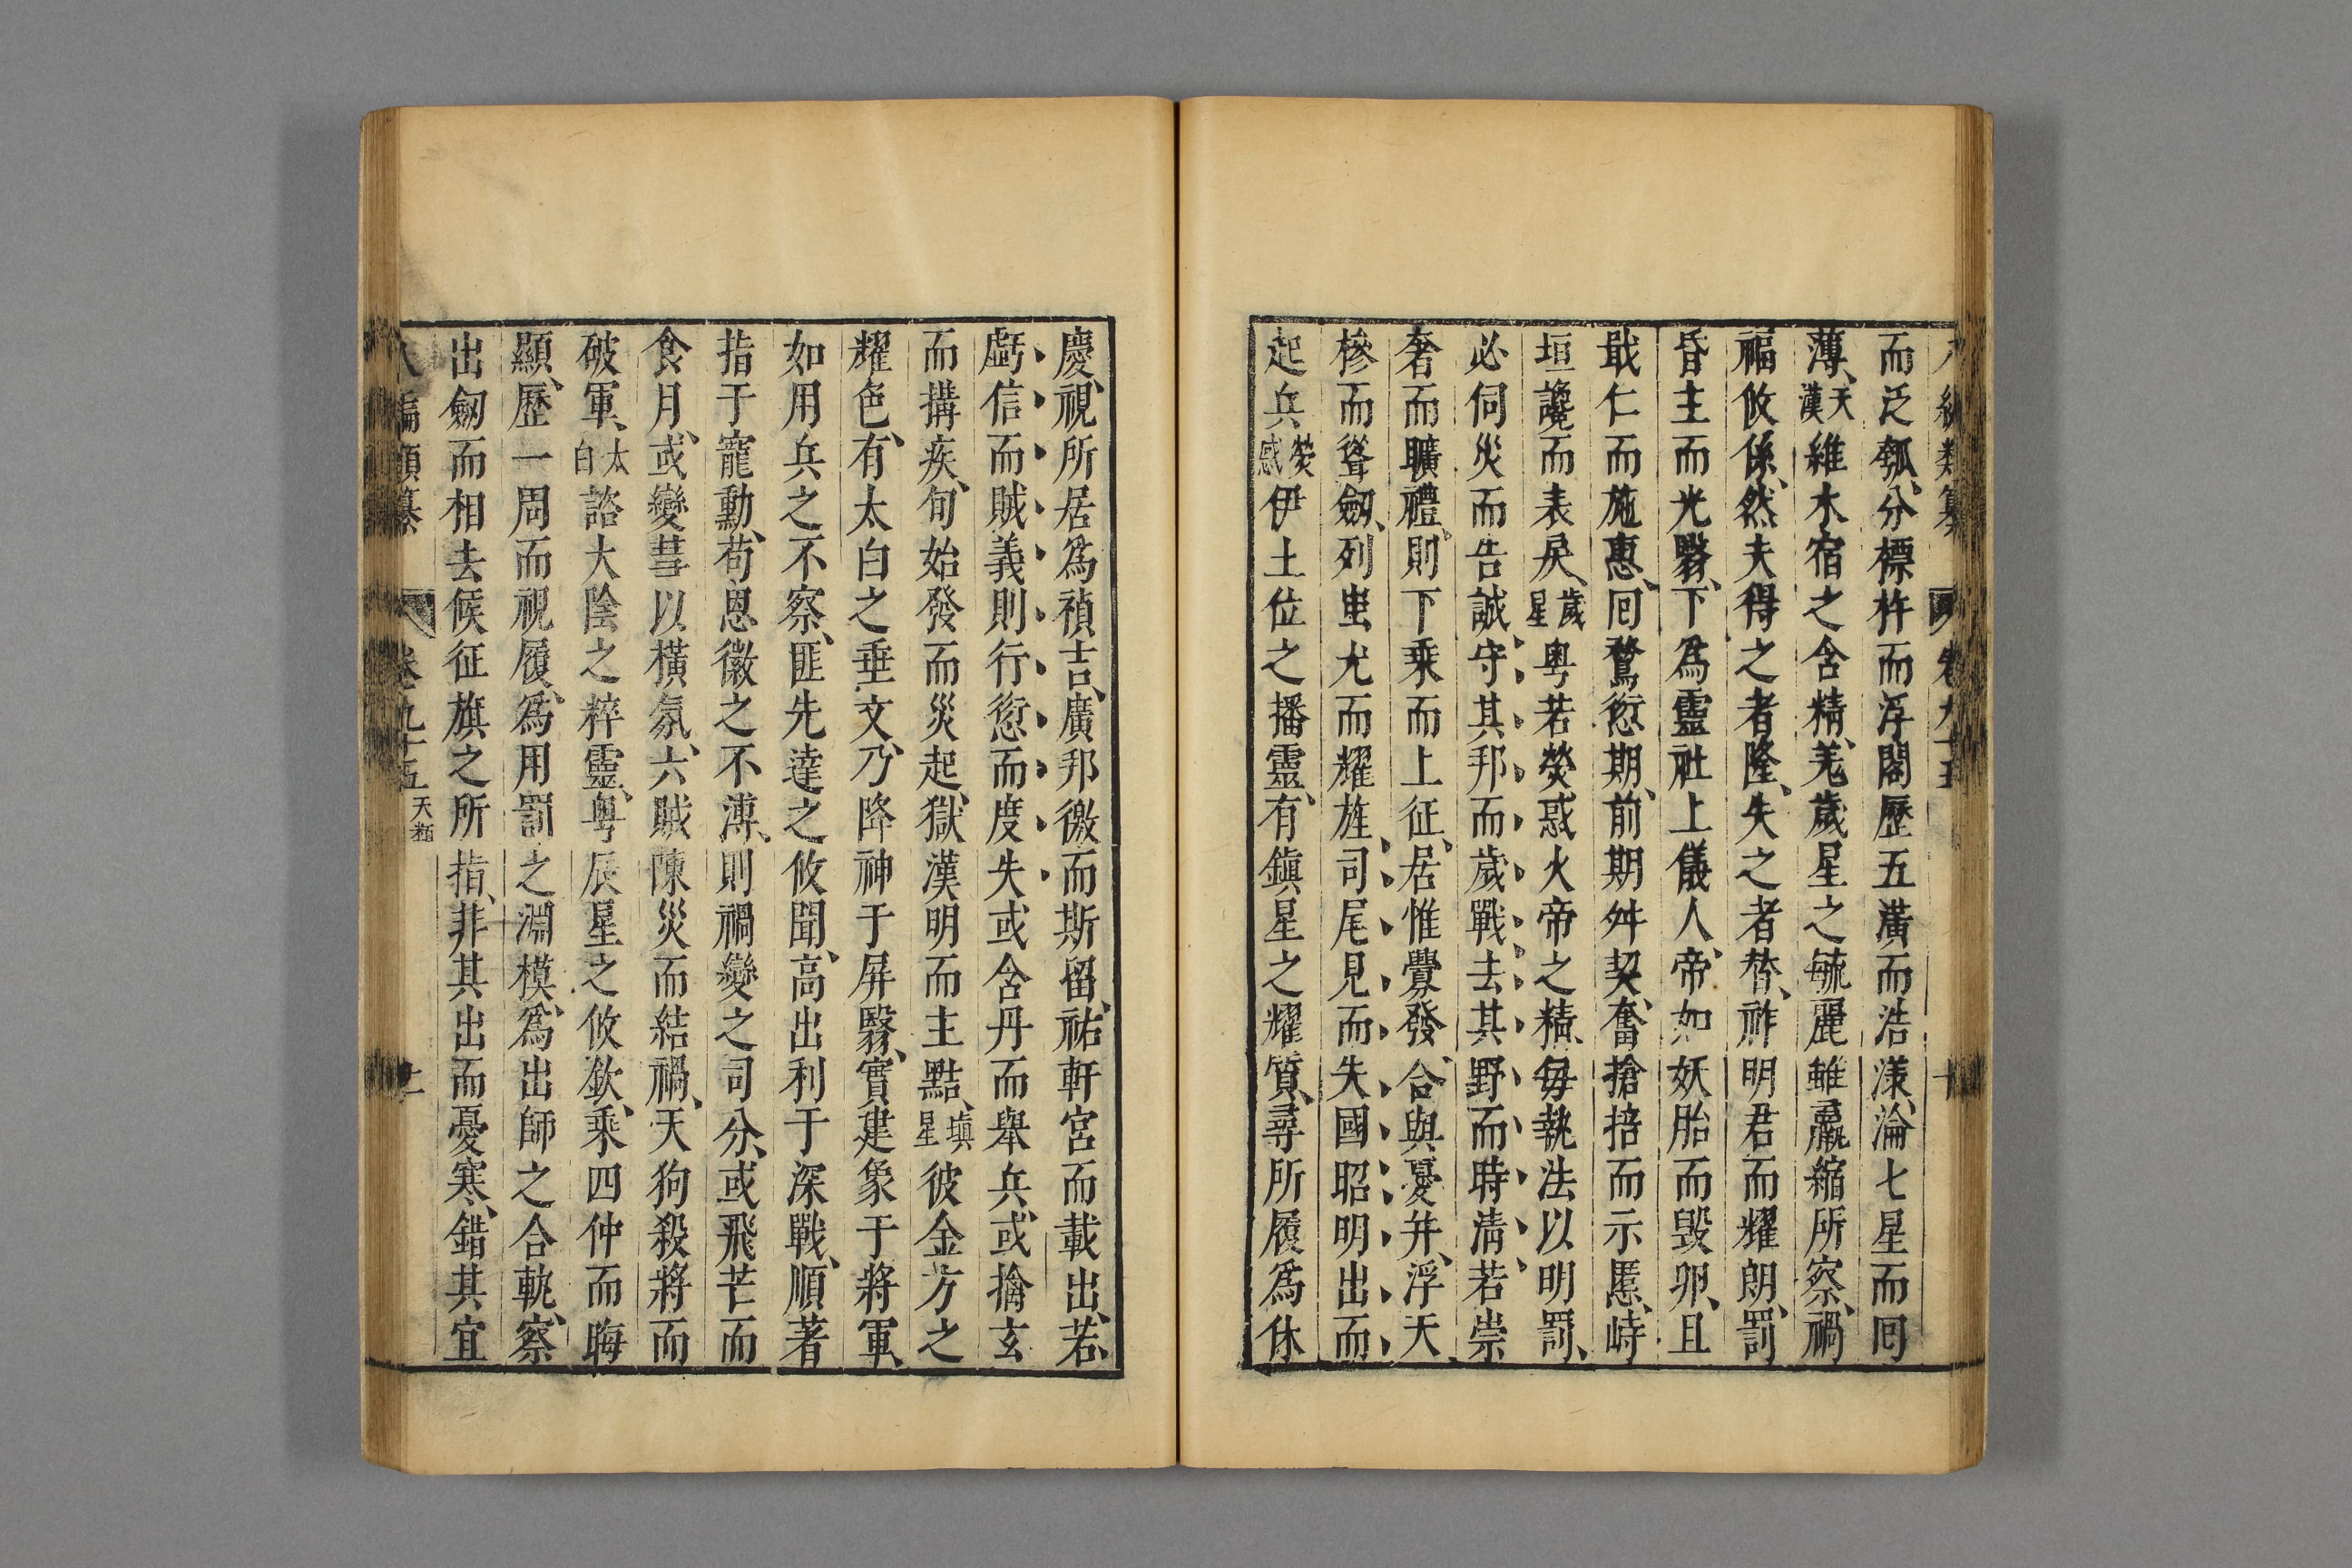 而泛瓠、分標杵而浮閣歷五潢而浩漾、淪七星而囘
薄、天漢維木宿之含精、羗歲星之毓麗雖贏縮所察、禍
福攸係、然夫得之者隆、失之者替、祚明君而耀朗、罰
昏主而光翳、下爲靈社上儀人帝、如妖胎而毀卵、且
戢仁而施惠、囘騖愆期、前期舛契、奮搶掊而示慝、峙
垣讒而表戾、歲星粤若熒惑火帝之精、毎執法以明罰、
必伺災而告誠守其邦而歲戰去其野而時淸若崇
奢而曠禮、則下乘而上征、居惟釁發、合與憂并、浮天
㰐而聳劒、列蚩尤而耀旌、司尾見而失國昭明出而
起兵熒惑伊土位之播靈、有鎭星之耀質、尋所履爲休
慶、視所居爲禎吉、廣邦徼而斯留、祐軒宮而載出、若
虧信而賊義則行愆而度失或含丹而舉兵、或擒玄
而搆疾、旬始發而災起、獄漢明而主黠、塡星彼金方之
耀色、有太白之垂文、乃降神于屏翳、實建象于將軍、
如用兵之不察、匪先達之攸聞、高出利于深戰、順著
指于寵勳、苟恩徽之不溥、則禍變之司分、或飛芒而
食月、或變彗以橫氛、六賊陳災而結禍、天狗殺將而
破軍、太白諮大陰之粹靈、粤辰星之攸欽、乘四仲而晦
顯、歷一周而視履、爲用罰之淵模、爲出師之合軌、察
出劒而相去候征旗之所指、非其出而憂寒、錯其宜
八編類纂 卷九十五 天類